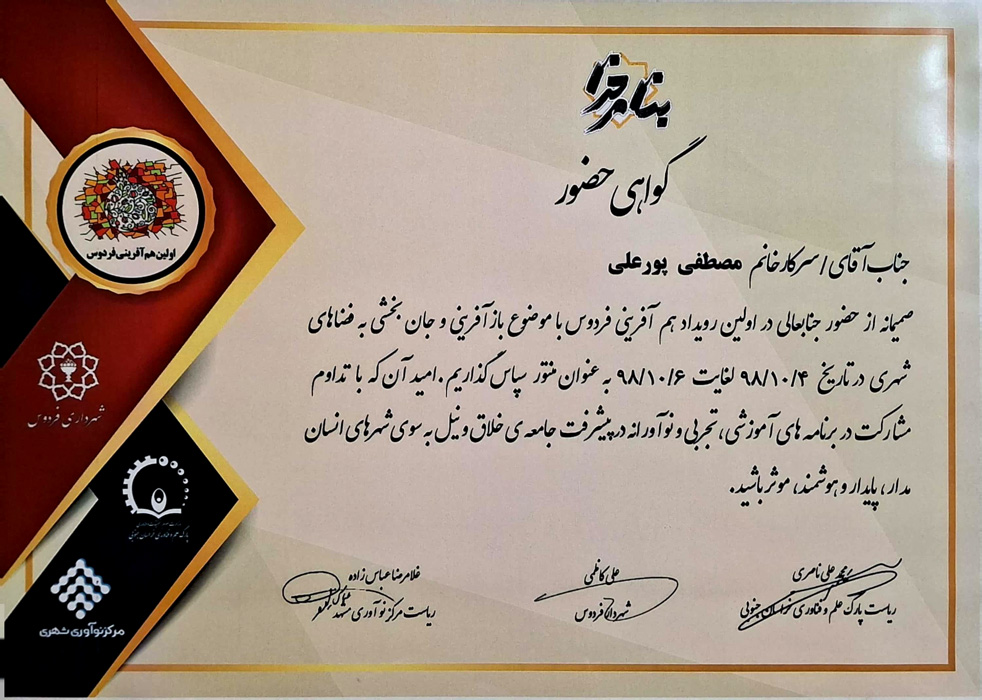 بنام خدا
گواهی حضور
جناب آقای / سرکار خانم مصطفی پورعلی
صمیمانه از حضور جنابعالی در اولین رویداد هم آفرینی فردوس با موضوع بازآفرینی و جان بخشی به فضاهای
شهری در تاریخ ۹۸/۱۰/۴ لغایت ۹۸/۱۰/۶ به عنوان منتور سپاس گذاریم. امید آن که با تداوم
مشارکت در برنامه های آموزشی، تجربی و نوآورانه در پیشرفت جامعه ی خلاق و نیل به سوی شهرهای انسان
مدار، پایدار و هوشمند، موثر باشید.
محمد علی ناصری
ریاست پارک علم و فناوری خراسان جنوبی
علی کاظمی
شهردار فردوس
غلامرضا عباس زاده
ریاست مرکز نوآوری مشهد
اولین هم آفرینی فردوس
شهرداری فردوس
پارک علم و فناوری خراسان جنوبی
مرکز نوآوری شهری